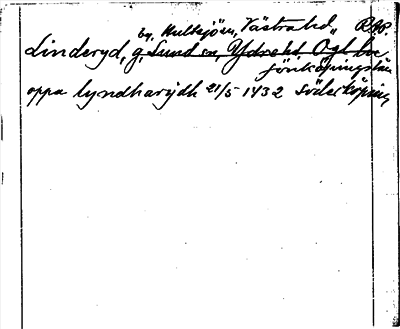 by. Hultsjö sn, Västra hd, RAP.
Linderyd, g. Sund sn, Ydre hd Ögl
Jönköpings län
oppa lyndharydh 21/5 1432 Söderköping